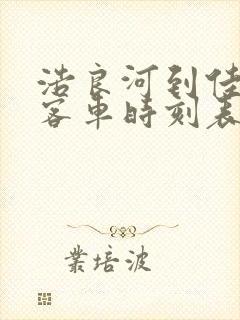 浩良河到佳
客車時刻表
業培波